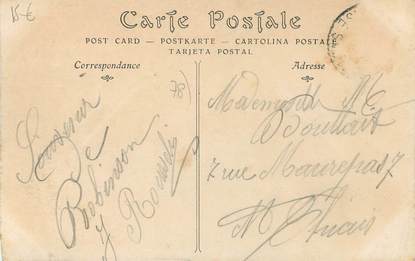 15-€
Carte Postale
POST CARD — POSTKARTE — CARTOLINA POSTALE
TARJETA POSTAL
Correspondance
Adresse
78)
Souvenir
de
Robinson
Mademoiselle M E
7 rue Maurepas 7